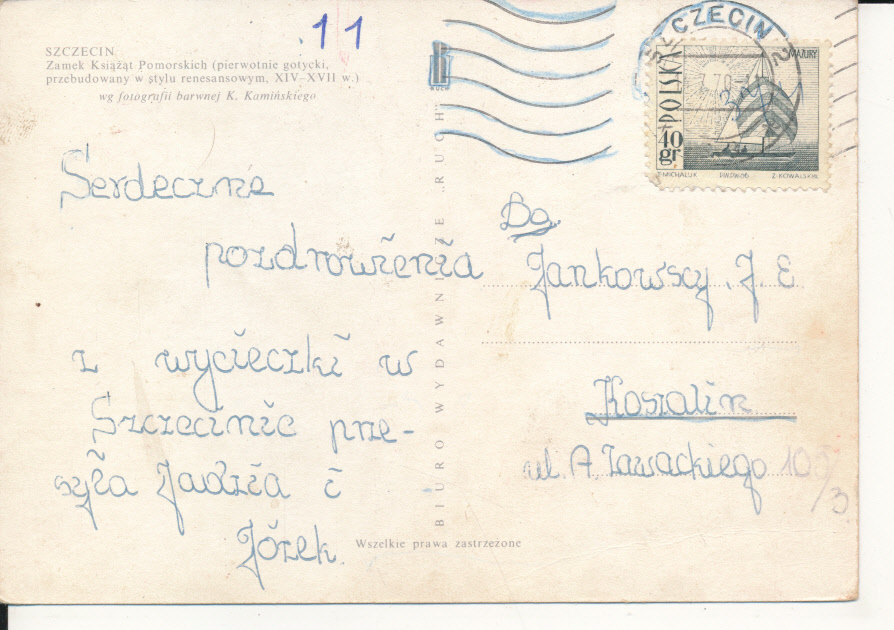 11
SZCZECIN
Zamek Książąt Pomorskich (pierwotnie gotycki,
przebudowany w stylu renesansowym, XIV–XVII w.)
wg fotografii barwnej K. Kamińskiego
Serdeczne
pozdrowienia
z wycieczki w
Szczecinie prze-
syła Jadzia i
Józek
BIURO WYDAWNICZE „RUCH”
RUCH
Wszelkie prawa zastrzeżone
SZCZECIN 2
POLSKA
40 gr
MAZURY
T. MICHALUK
PWPW/66
Z. KOWALSKI
Jankowscy J. E
Koszalin
ul. A Zawackiego